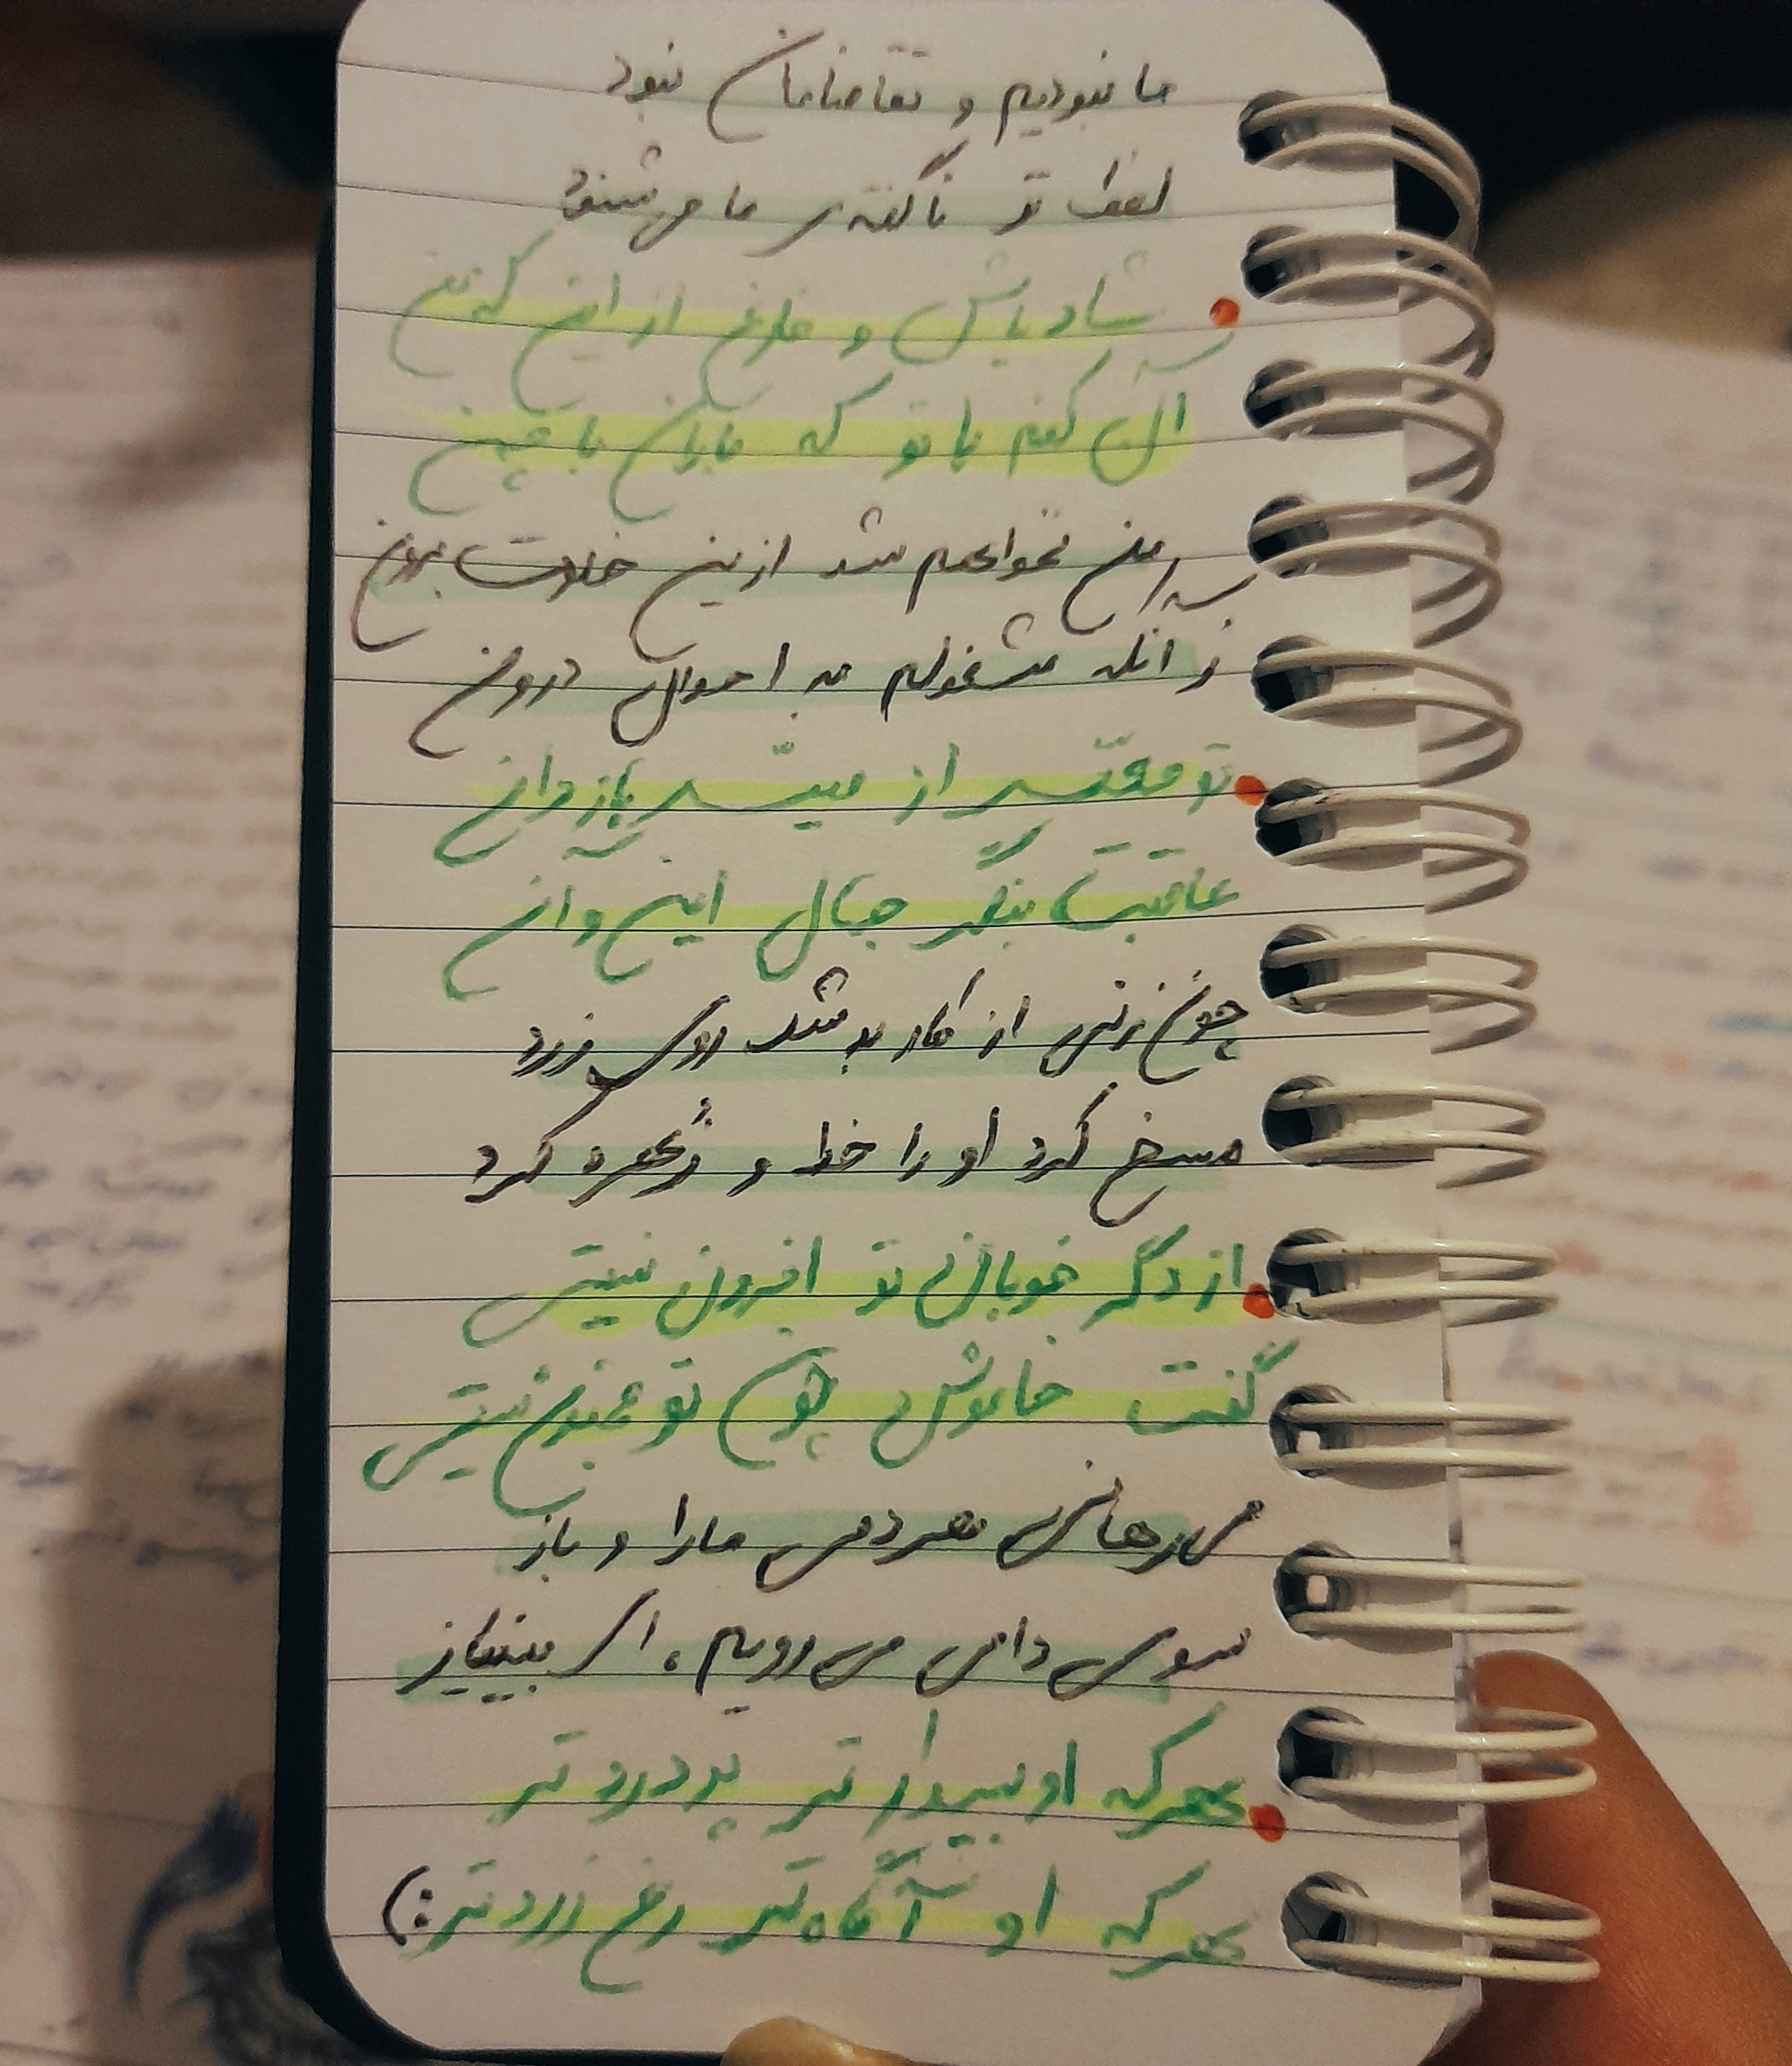 ما نبودیم و تقاضامان نبود
لطف تو ناگفته‌ی ما می‌شنود
شاد باش و فارغ از این که من
آن کنم با تو که باران با چمن
من نخواهم شد ازین خلوت برون
زانکه مشغولم به احوال درون
تو مفتّش از میسّر باز دان
عاقبت بنگر جمال این و آن
چون زنی از کار بد شد روی زرد
مسخ کرد او را خدا و زُهره کرد
از دگر خوبان تو افزون نیستی
گفت خاموش چون تو مجنون نیستی
می‌رهانی هر دمی ما را و باز
سوی دامی می‌رویم، ای بینیاز
هر که او بیدارتر پر دردتر
هر که او آگاه‌تر رخ زردتر:)